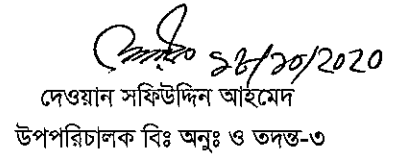 ১৮/১০/2020
দেওয়ান সফিউদ্দিন আহমেদ
উপপরিচালক বিঃ অনুঃ ও তদন্ত-৩